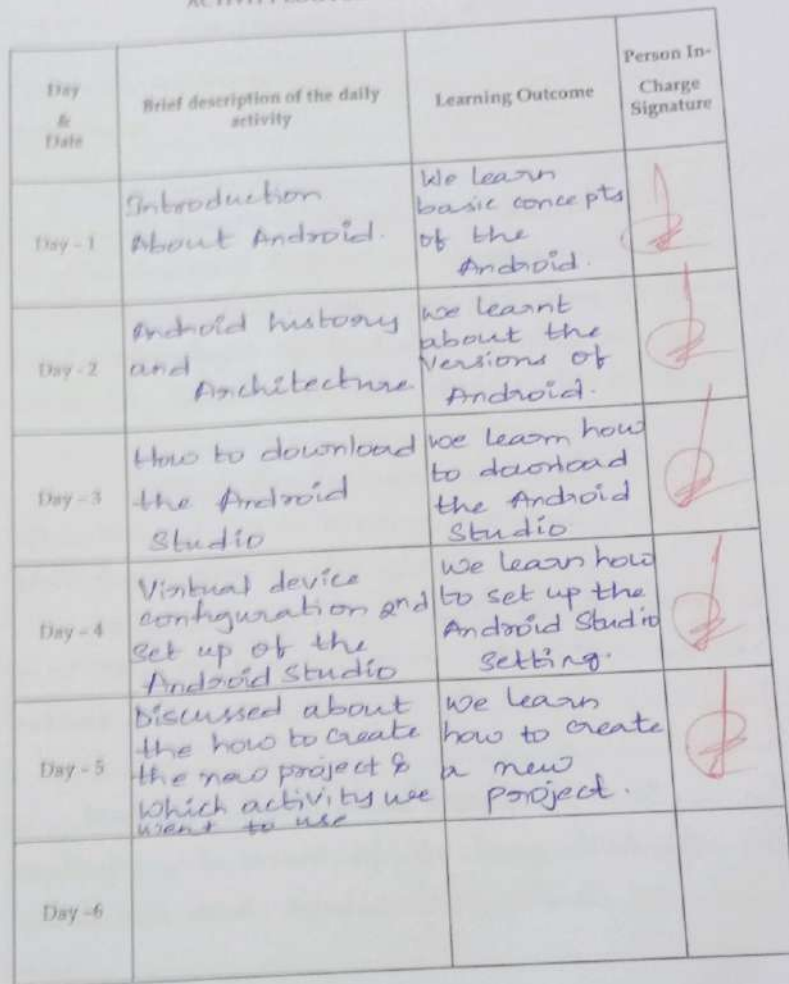 Day
&
Date
Brief description of the daily
activity
Learning Outcome
Person In-
Charge
Signature
Day - 1
Introduction
About Android.
We Learn
basic concepts
of the
Android.
Day - 2
Android history
and
Architecture
we learnt
about the
Versions of
Android.
Day - 3
How to download
the Android
Studio
we learn how
to download
the Android
Studio
Day - 4
Virtual device
configuration and
set up of the
Android Studio
we learn how
to set up the
Android Studio
setting.
Day - 5
Discussed about
the how to create
the new project &
which activity we
want to use
we learn
how to create
a new
project.
Day -6